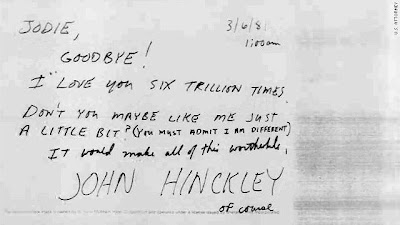 JODIE,
3/6/81
1:00am
GOODBYE!
I LOVE YOU SIX TRILLION TIMES.
DON'T YOU MAYBE LIKE ME JUST
A LITTLE BIT? (YOU MUST ADMIT I AM DIFFERENT)
IT would make all of this worthwhile.
JOHN HINCKLEY
of course
U.S. ATTORNEY